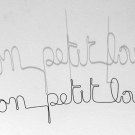 mon petit lou
mon petit lou